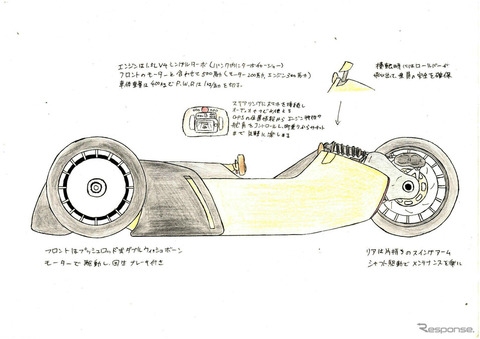 エンジンは1.0L V4 シングルターボ(ハンクリ インターボチャージャー)
フロントのモーターと合わせて500馬力(モーター200馬力、エンジン300馬力)
車体重量は400kgで P.W.Rは1kg/psを切る。
接触時にはロールバーが
飛び出て乗員の安全を確保
ステアリングにスマホを接続し
オーディオやナビの使える
GPSの位置情報からエンジン特性や
まで気軽に楽しめる
フロントはプッシュロッド式ダブルウィッシュボーン
モーターで駆動し、回生ブレーキ付き
リアは片持ちのスイングアーム
シャフト駆動でメンテナンスを楽に
Response.